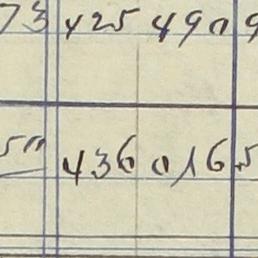 73 425 490 9
50 436 016 5